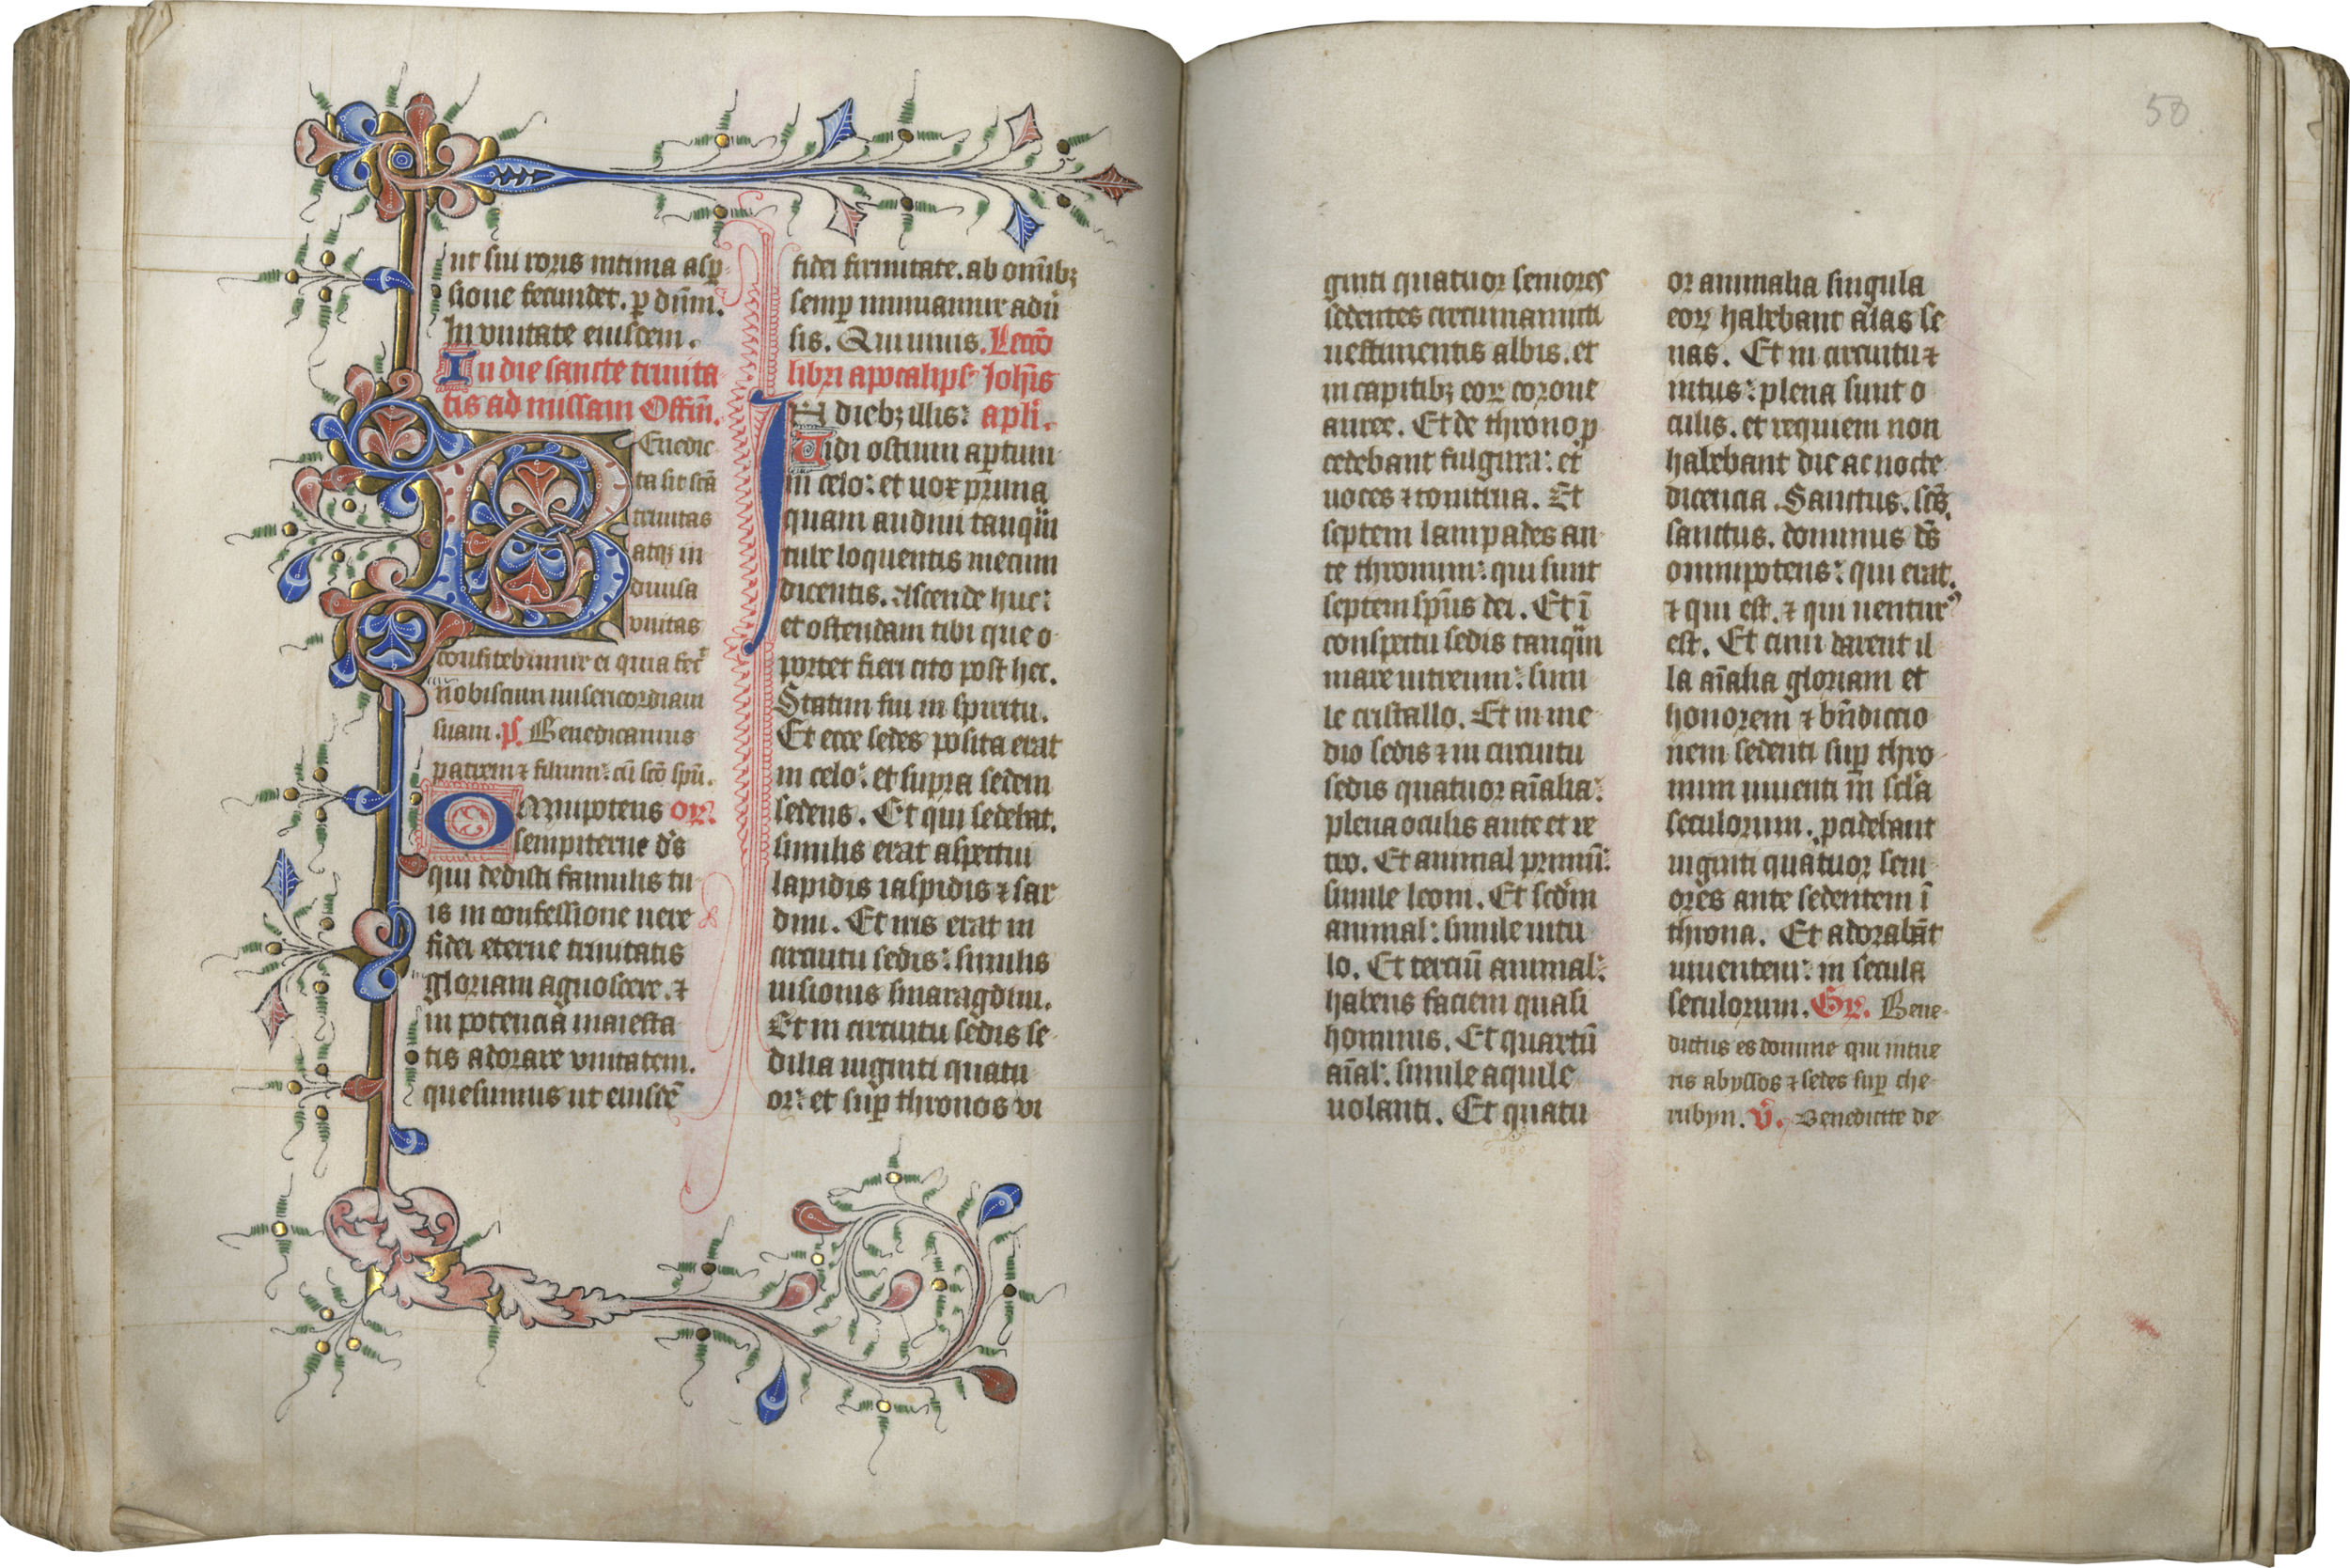 ut sui roris intima asp̱
sione fecundet. ꝑ dn̄m.
In vnitate eiusdem.
In die sancte trinita
tis ad missam Offm̄.
Benedic
ta sit sc̄a
trinitas
atqꝫ in
diuisa
vnitas
confitebimur ei quia fec̄
nobiscum misericordiam
suam. p̄s. Benedicamus
patrem ⁊ filium: cū sc̄o spū.
Omnipotens oꝝ.
sempiterne d̄s
qui dedisti famulis tu
is in confessione uere
fidei eterne trinitatis
gloriam agnoscere. ⁊
in potencia maiesta
tis adorare vnitatem.
quesumus ut eiusdē
fidei firmitate. ab omībꝫ
semꝑ muniamur adū
sis. Qui uiuis. Lecō
libri apocalips̄ Joh̄is
In diebꝫ illis: apl̄i.
Uidi ostium aꝑtum
in celo: et uox prima
quam audiui tanq̄m
tube loquentis mecum
dicentis. Ascende huc:
et ostendam tibi que o
portet fieri cito post hec.
Statim fui in spiritu.
Et ecce sedes posita erat
in celo: et supra sedem
sedens. Et qui sedebat.
similis erat aspectui
lapidis iaspidis ⁊ sar
dini. Et iris erat in
circuitu sedis: similis
uisionis smaragdini.
Et in circuitu sedis se
dilia uiginti quatu
or: et suꝑ thronos vi
ginti quatuor seniores
sedentes circumamicti
uestimentis albis. et
in capitibꝫ eoꝝ corone
auree. Et de throno p
cedebant fulgura: et
uoces ⁊ tonitrua. Et
septem lampades an
te thronum: qui sunt
septem sp̄us dei. Et ī
conspectu sedis tanq̄m
mare uitreum: simi
le cristallo. Et in me
dio sedis ⁊ in circuitu
sedis quatuor aīalia:
plena oculis ante et re
tro. Et animal primū:
simile leoni. Et scd̄m
animal: simile uitu
lo. Et terciū animal:
habens faciem quasi
hominis. Et quartū
aīal: simile aquile
uolanti. Et quatu
or animalia singula
eoꝝ habebant alas se
nas. Et in circuitu ⁊
intus: plena sunt o
culis. et requiem non
habebant die ac nocte
dicencia. Sanctus. sc̄s.
sanctus. dominus d̄s
omnipotens: qui erat.
⁊ qui est. ⁊ qui uenturꝰ
est. Et cum darent il
la aīalia gloriam et
honorem ⁊ bn̄dictio
nem sedenti suꝑ thro
num uiuenti in sc̄la
seculorum. pcidebant
uiginti quatuor seni
ores ante sedentem ī
throno. Et adorabāt
uiuentem: in secula
seculorum. Gr̄. Bene
dictus es domine qui intue
ris abyssos ⁊ sedes suꝑ che
rubyn. v̄. Benedicite de
50